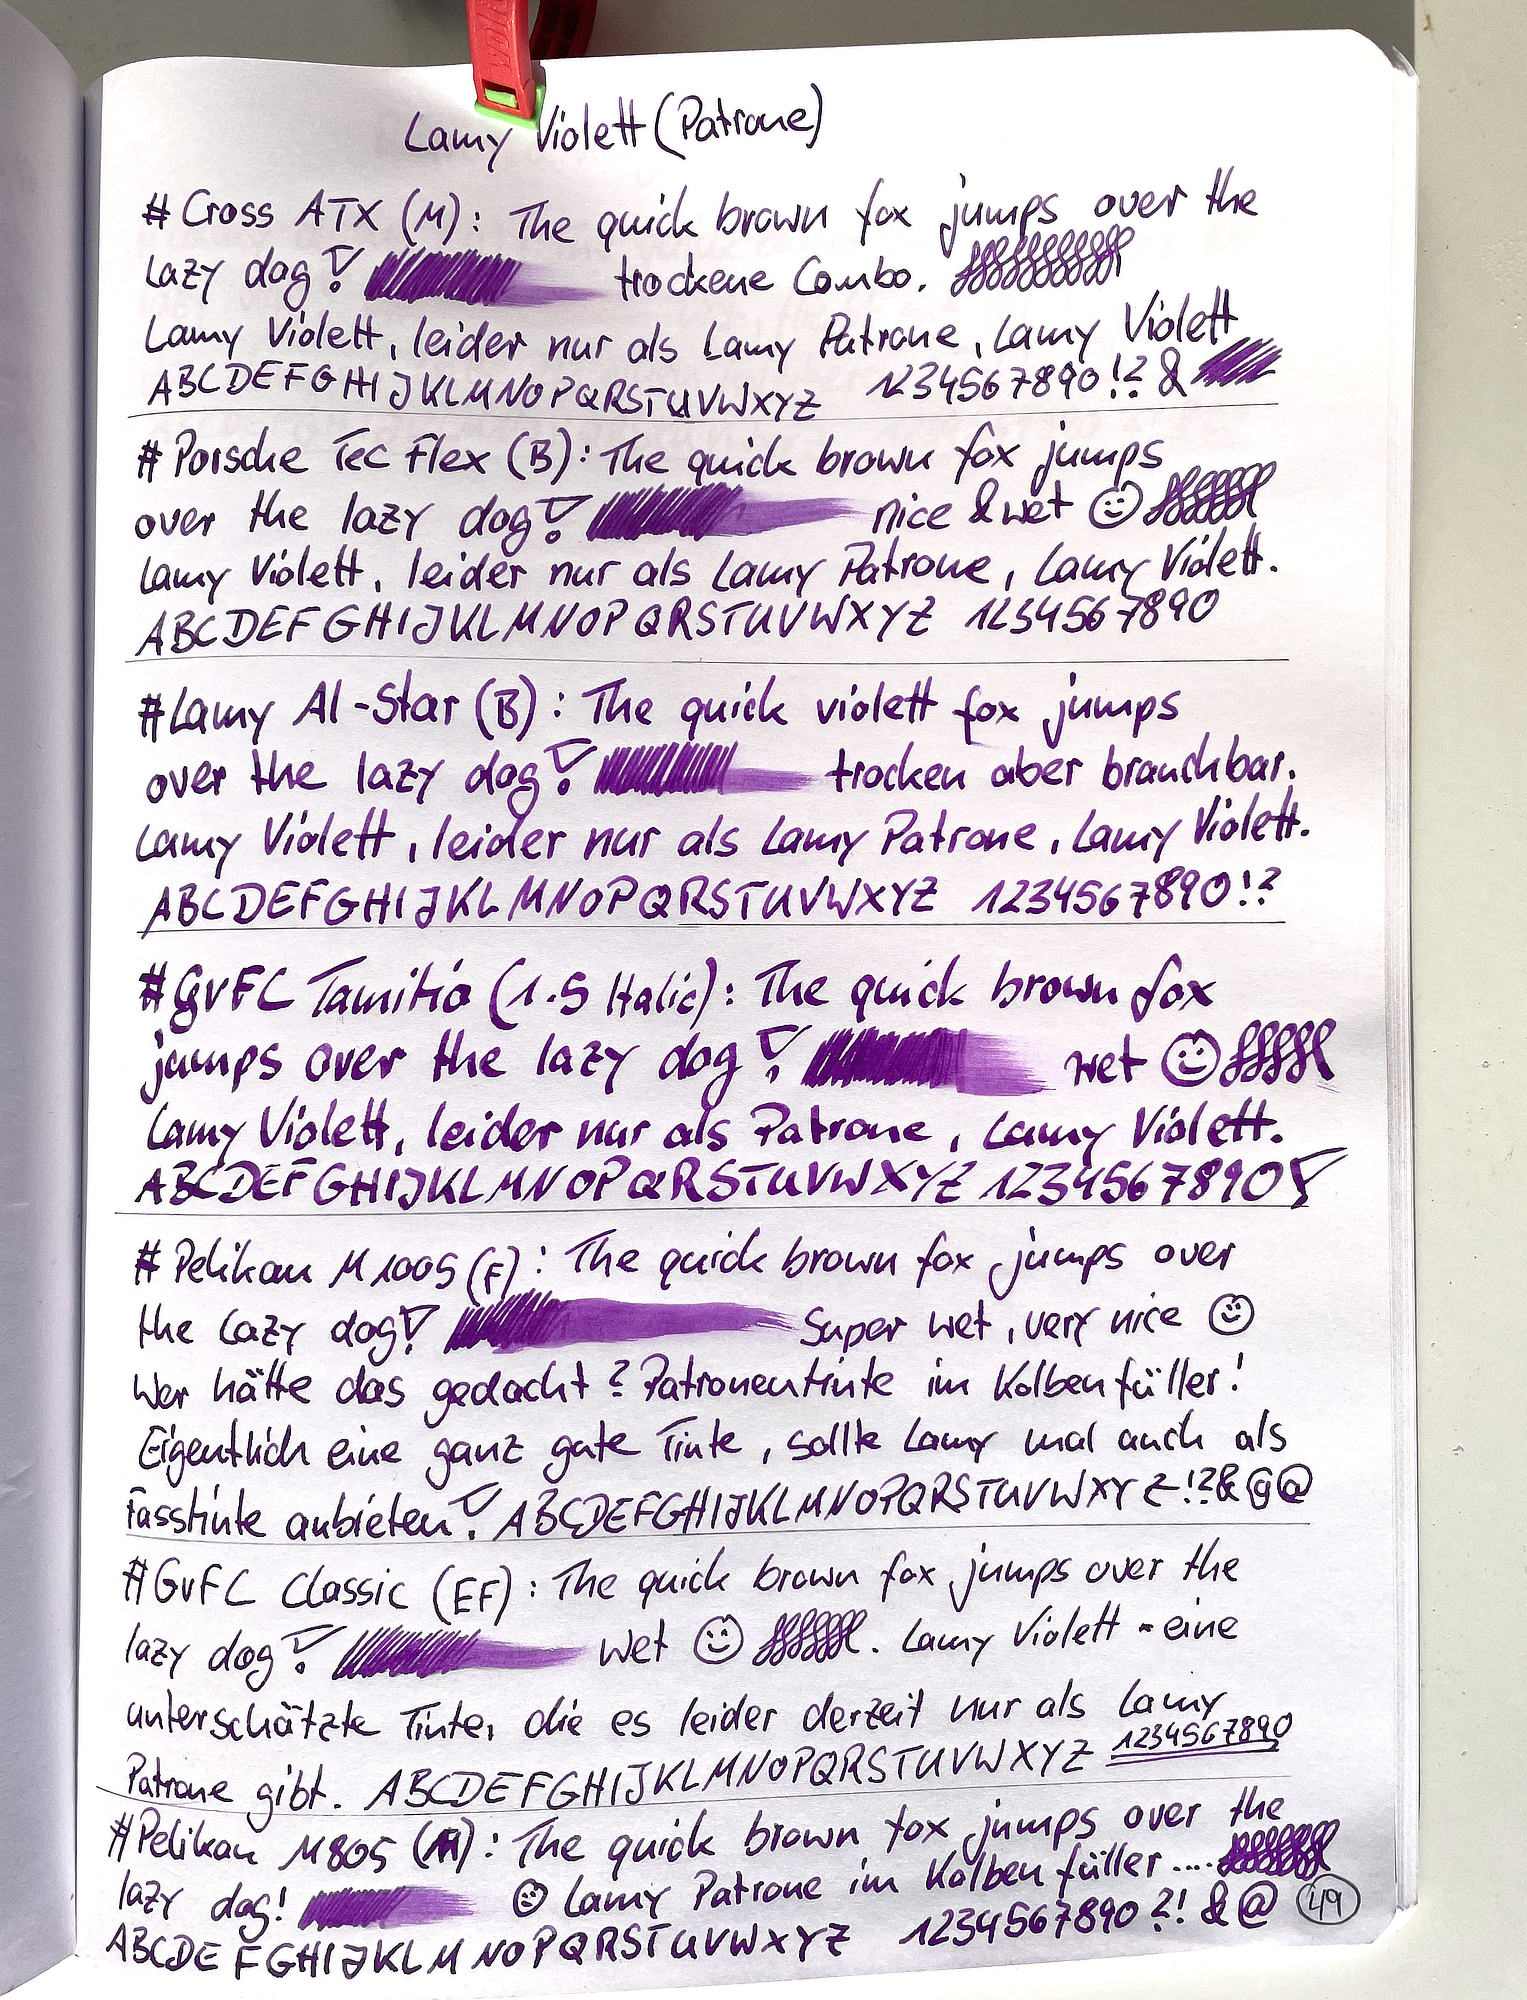 Lamy Violett (Patrone)
# Cross ATX (M): The quick brown fox jumps over the
lazy dog! trockene Combo.
Lamy Violett, leider nur als Lamy Patrone, Lamy Violett
ABCDEFGHIJKLMNOPQRSTUVWXYZ 1234567890!? &
# Porsche Tec Flex (B): The quick brown fox jumps
over the lazy dog! nice & wet ☺
Lamy Violett, leider nur als Lamy Patrone, Lamy Violett.
ABCDEFGHIJKLMNOPQRSTUVWXYZ 1234567890
# Lamy Al-Star (B): The quick violett fox jumps
over the lazy dog! trocken aber brauchbar.
Lamy Violett, leider nur als Lamy Patrone, Lamy Violett.
ABCDEFGHIJKLMNOPQRSTUVWXYZ 1234567890!?
# GvFC Tamitio (1.5 Italic): The quick brown fox
jumps over the lazy dog! wet ☺
Lamy Violett, leider nur als Patrone, Lamy Violett.
ABCDEFGHIJKLMNOPQRSTUVWXYZ 1234567890!
# Pelikan M1005 (F): The quick brown fox jumps over
the lazy dog! Super wet, very nice ☺
Wer hätte das gedacht? Patronentinte im Kolbenfüller!
Eigentlich eine ganz gute Tinte, sollte Lamy mal auch als
Fasstinte anbieten! ABCDEFGHIJKLMNOPQRSTUVWXYZ!?&@@
# GvFC Classic (EF): The quick brown fox jumps over the
lazy dog! wet ☺ . Lamy Violett - eine
unterschätzte Tinte, die es leider derzeit nur als Lamy
Patrone gibt. ABCDEFGHIJKLMNOPQRSTUVWXYZ 1234567890
# Pelikan M805 (M): The quick brown fox jumps over the
lazy dog! ☺ Lamy Patrone im Kolbenfüller ....
ABCDEFGHIJKLMNOPQRSTUVWXYZ 1234567890 ?! & @ 49